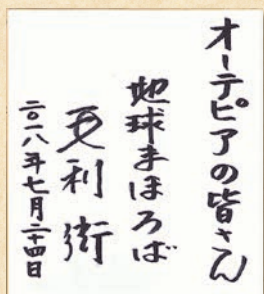 オーテピアの皆さん
地球まほろば
毛利衛
二〇一八年七月二十四日